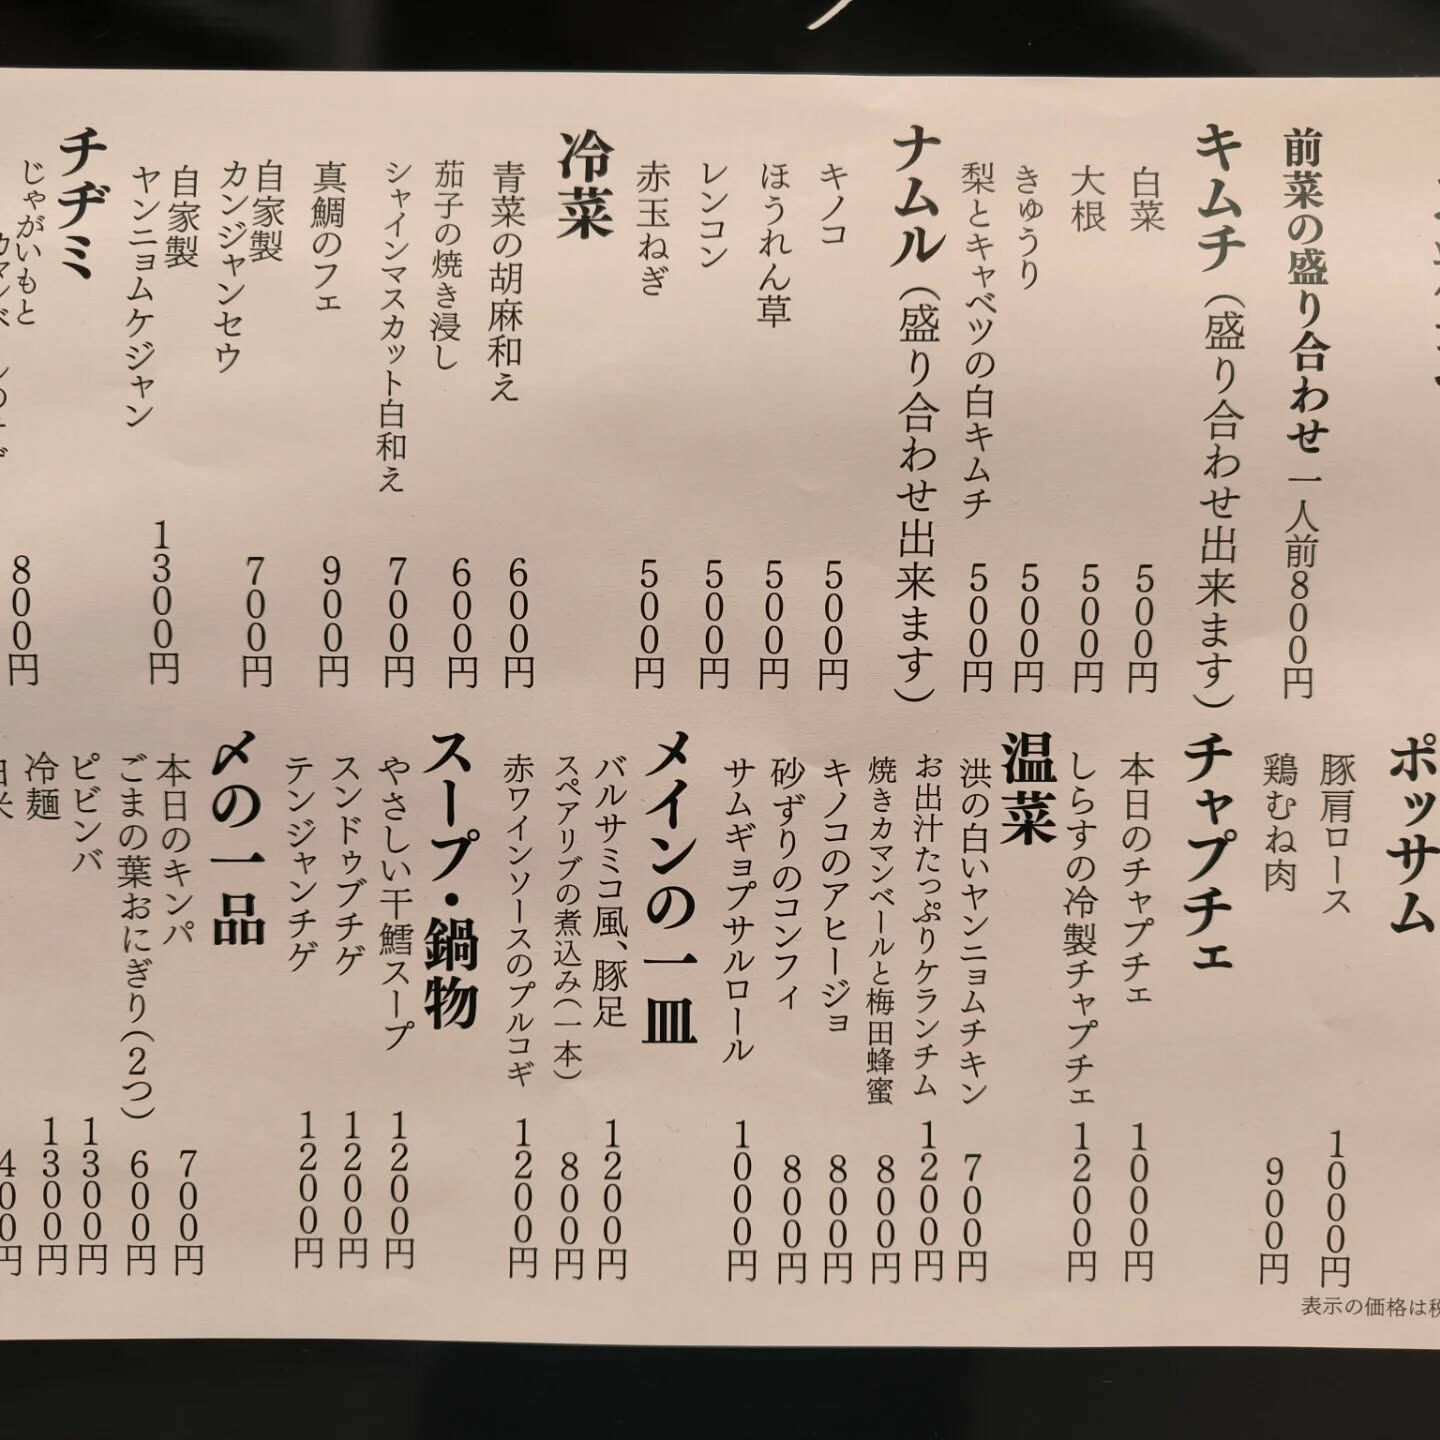 前菜の盛り合わせ 一人前800円
キムチ（盛り合わせ出来ます）
白菜 500円
大根 500円
きゅうり 500円
梨とキャベツの白キムチ 500円
ナムル（盛り合わせ出来ます）
キノコ 500円
ほうれん草 500円
レンコン 500円
赤玉ねぎ 500円
冷菜
青菜の胡麻和え 600円
茄子の焼き浸し 600円
シャインマスカット白和え 700円
真鯛のフェ 900円
自家製
カンジャンセウ 700円
自家製
ヤンニョムケジャン 1300円
チヂミ
じゃがいもと
800円
ポッサム
豚肩ロース 1000円
鶏むね肉 900円
チャプチェ
本日のチャプチェ 1000円
しらすの冷製チャプチェ 1200円
温菜
洪の白いヤンニョムチキン 700円
お出汁たっぷりケランチム 1200円
焼きカマンベールと梅田蜂蜜 800円
キノコのアヒージョ 800円
砂ずりのコンフィ 800円
サムギョプサルロール 1000円
メインの一皿
バルサミコ風、豚足 1200円
スペアリブの煮込み（一本） 800円
赤ワインソースのプルコギ 1200円
スープ・鍋物
やさしい干鱈スープ 1200円
スンドゥブチゲ 1200円
テンジャンチゲ 1200円
〆の一品
本日のキンパ 700円
ごまの葉おにぎり（2つ） 600円
ピビンバ 1300円
冷麺 1300円
400円
表示の価格は